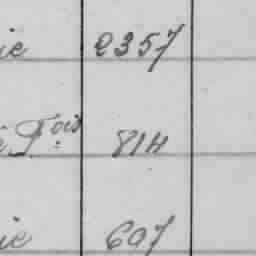 ie 2357
Fois 814
ie 607